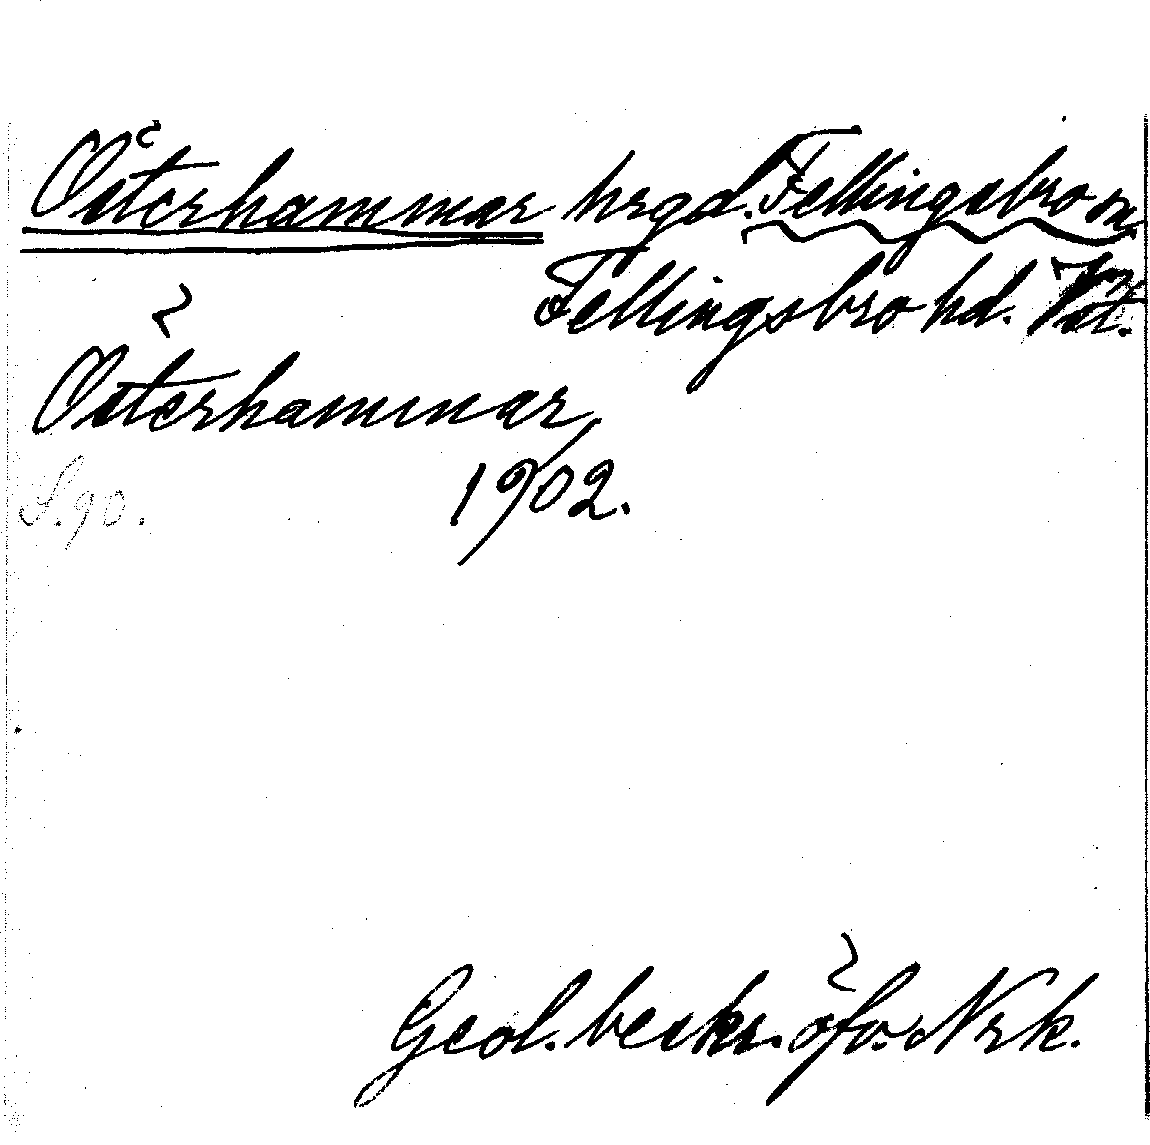 Österhammar hrgd. Fellingsbro sn
Fellingsbro hd. Vstm.
Österhammar,
S. 90. 1902.
Geol. beskr. öfv. Nrk.